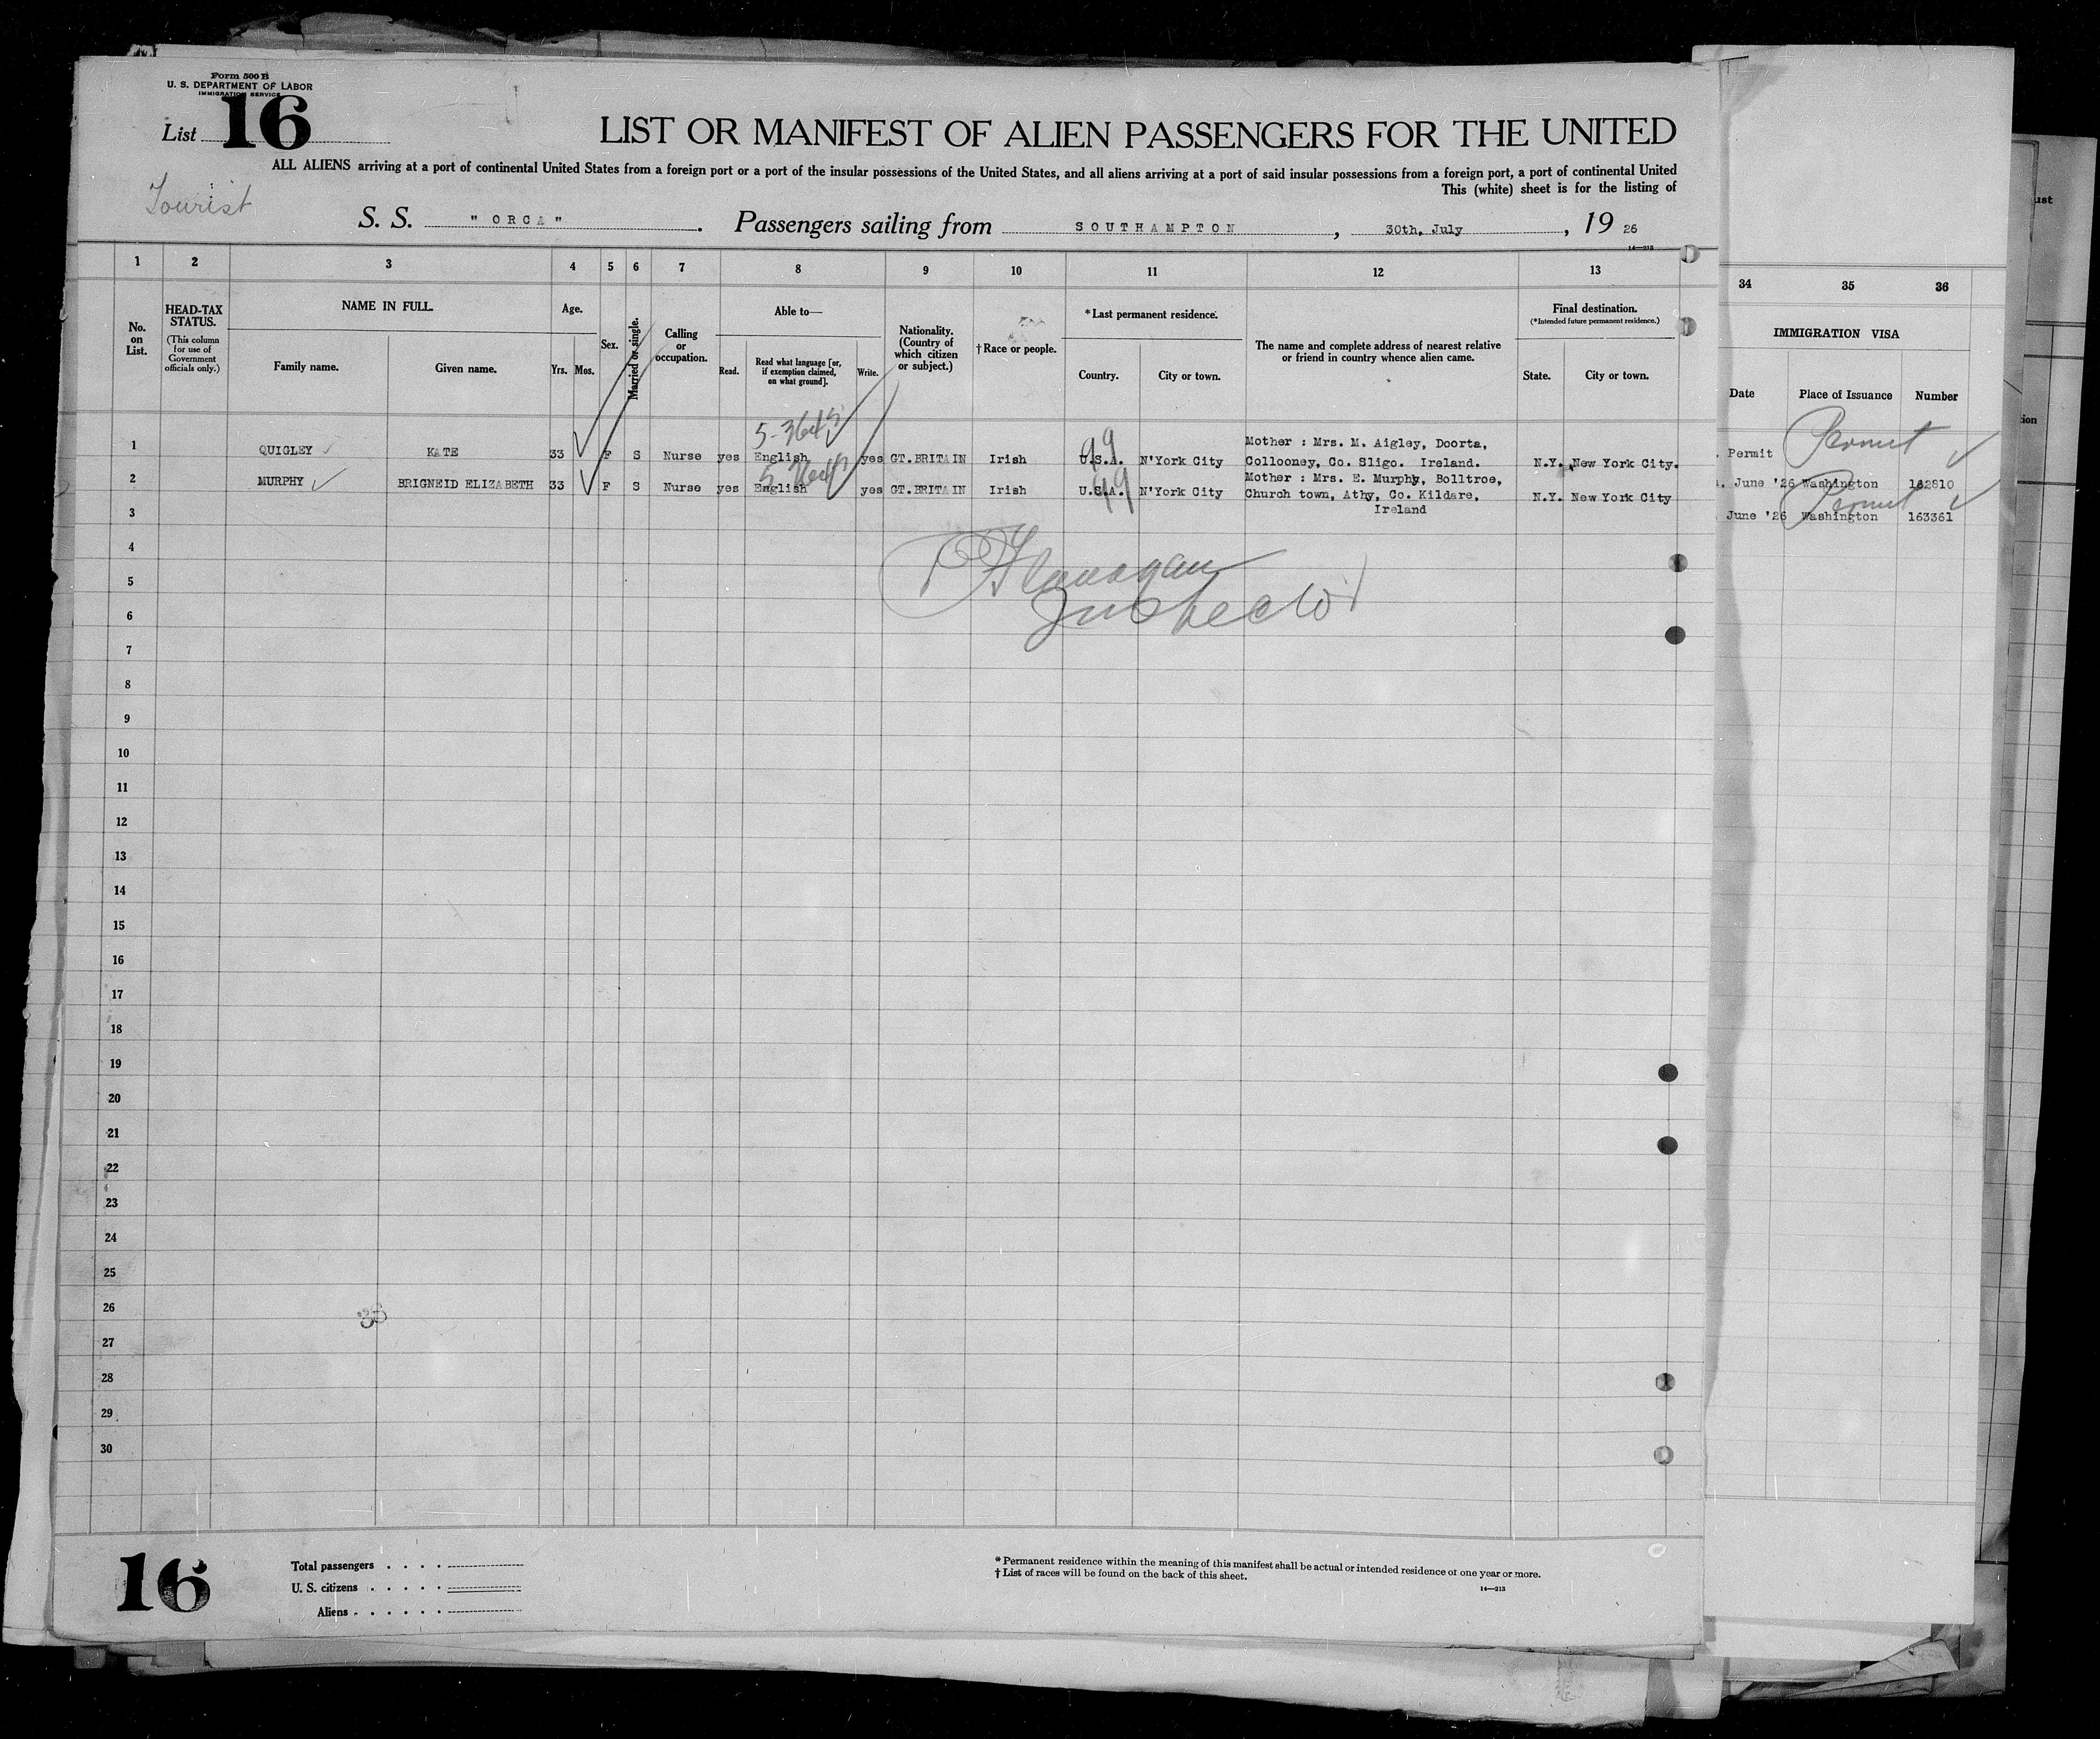 Form 500 B
U. S. DEPARTMENT OF LABOR
IMMIGRATION SERVICE
List 16
LIST OR MANIFEST OF ALIEN PASSENGERS FOR THE UNITED
ALL ALIENS arriving at a port of continental United States from a foreign port or a port of the insular possessions of the United States, and all aliens arriving at a port of said insular possessions from a foreign port, a port of continental United
This (white) sheet is for the listing of
Tourist
S. S. "ORCA". Passengers sailing from SOUTHAMPTON, 30th, July, 19 26
14—213
1 2 3 4 5 6 7 8 9 10 11 12 13
34 35 36
No. on List.
HEAD-TAX STATUS.
(This column for use of Government officials only.)
NAME IN FULL.
Family name. Given name.
Age.
Yrs. Mos.
Sex.
Married or single.
Calling or occupation.
Able to—
Read. Read what language [or, if exemption claimed, on what ground]. Write.
Nationality. (Country of which citizen or subject.)
†Race or people.
*Last permanent residence.
Country. City or town.
The name and complete address of nearest relative or friend in country whence alien came.
Final destination.
(*Intended future permanent residence.)
State. City or town.
IMMIGRATION VISA
Date Place of Issuance Number
1 QUIGLEY KATE 33 F S Nurse yes English yes GT.BRITAIN Irish U.S.A. N'York City Mother : Mrs. M. Aigley, Doorta,
Collooney, Co. Sligo. Ireland. N.Y. New York City.
2 MURPHY BRIGNEID ELIZABETH 33 F S Nurse yes English yes GT.BRITAIN Irish U.S.A. N'York City Mother : Mrs. E. Murphy, Bolltroe,
Church town, Athy, Co. Kildare, N.Y. New York City
Ireland
Permit
Permit
June '26 Washington 162810
Permit
June '26 Washington 163361
3
4
P Flanagan
5
Inspector
6
7
8
9
10
11
12
13
14
15
16
17
18
19
20
21
22
23
24
25
26
27
28
29
30
16
Total passengers
U. S. citizens
Aliens
* Permanent residence within the meaning of this manifest shall be actual or intended residence of one year or more.
† List of races will be found on the back of this sheet.
14—213